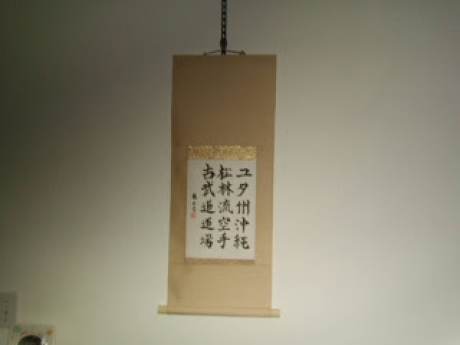 ユタ州沖縄
松林流空手
古武道道場